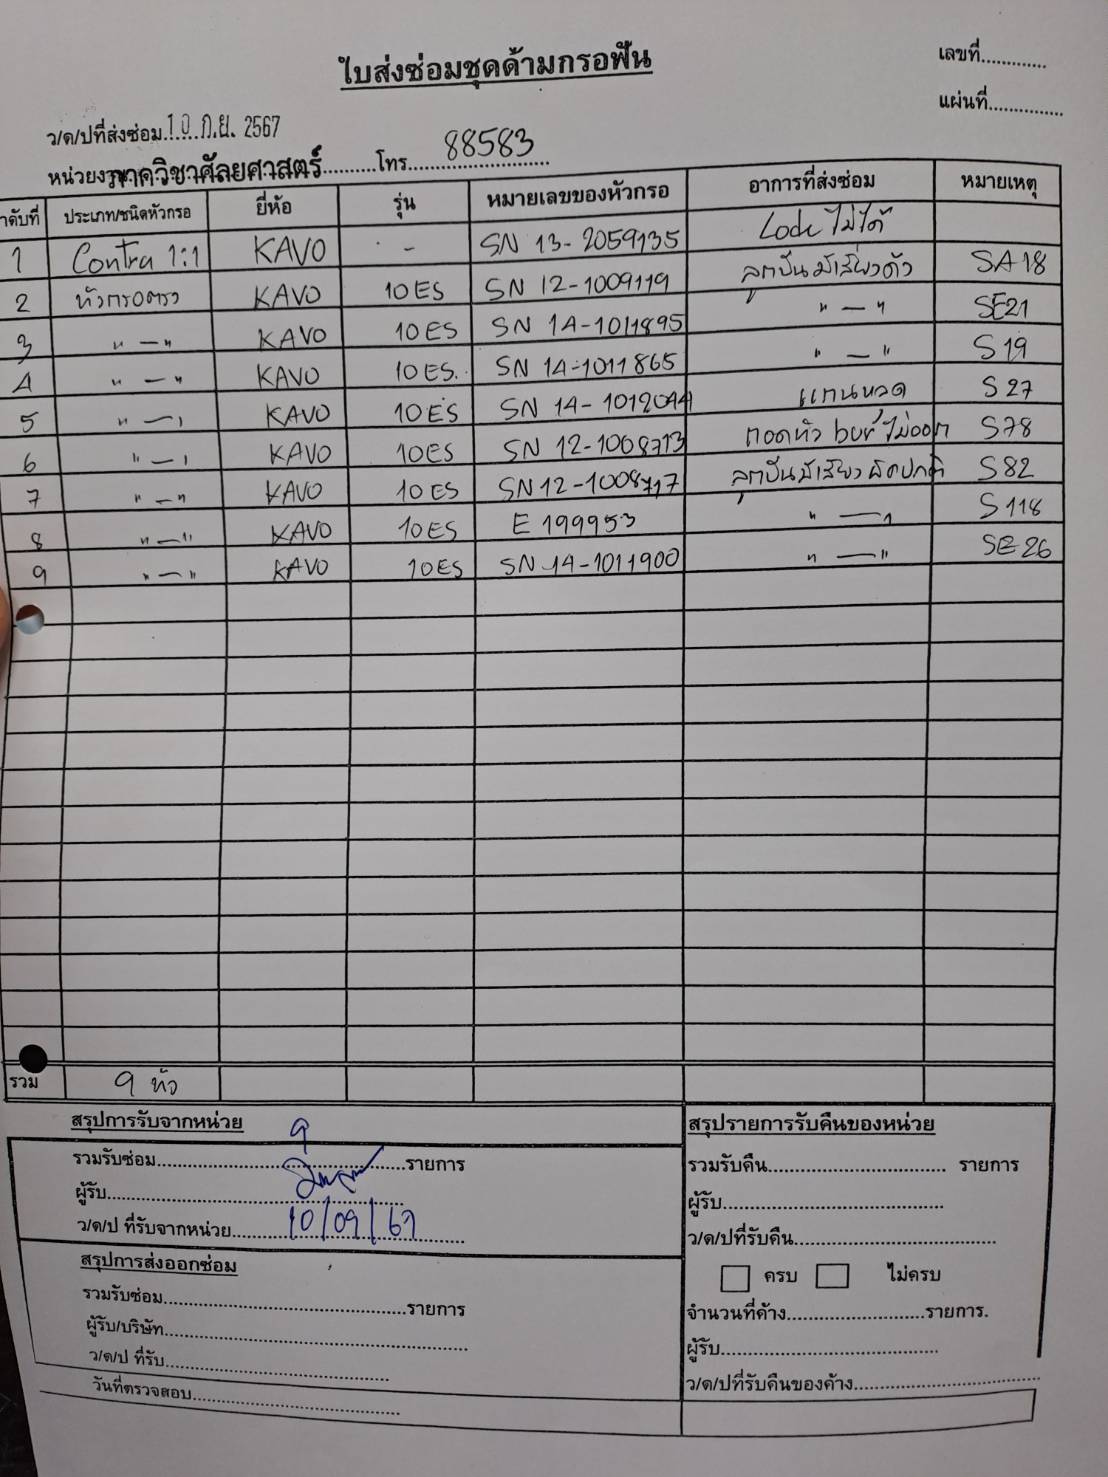 ใบส่งซ่อมชุดด้ามกรอฟัน
เลขที่.............
แผ่นที่...............
ว/ด/ปที่ส่งซ่อม 10 ก.ย. 2567
หน่วยงาน ภาควิชาศัลยศาสตร์ โทร. 88583
ลำดับที่ ประเภท/ชนิดหัวกรอ ยี่ห้อ รุ่น หมายเลขของหัวกรอ อาการที่ส่งซ่อม หมายเหตุ
1 Contra 1:1 KAVO - SN 13-2059135 Lock ไม่ได้
2 หัวกรอตรง KAVO 10ES SN 12-1009119 ลูกปืนมีเสียงดัง SA18
3 " — " KAVO 10ES SN 14-1011895 " — " SE21
4 " — " KAVO 10ES. SN 14-1011865 " — " S19
5 " — " KAVO 10ES SN 14-1012044 แกนหลวด S27
6 " — " KAVO 10ES SN 12-1008713 ถอดหัว bur ไม่ออก S78
7 " — " KAVO 10ES SN 12-1008717 ลูกปืนมีเสียงผิดปกติ S82
8 " — " KAVO 10ES E 199953 " — " S118
9 " — " KAVO 10ES SN 14-1011900 " — " SE26
รวม 9 หัว
สรุปการรับจากหน่วย
รวมรับซ่อม 9 รายการ
ผู้รับ
ว/ด/ป ที่รับจากหน่วย 10/09/67
สรุปการส่งออกซ่อม
รวมรับซ่อม..............................รายการ
ผู้รับ/บริษัท..............................
ว/ด/ป ที่รับ..............................
วันที่ตรวจสอบ..............................
สรุปรายการรับคืนของหน่วย
รวมรับคืน.............................. รายการ
ผู้รับ..............................
ว/ด/ปที่รับคืน..............................
ครบ ไม่ครบ
จำนวนที่ค้าง........................รายการ.
ผู้รับ..............................
ว/ด/ปที่รับคืนของค้าง..............................